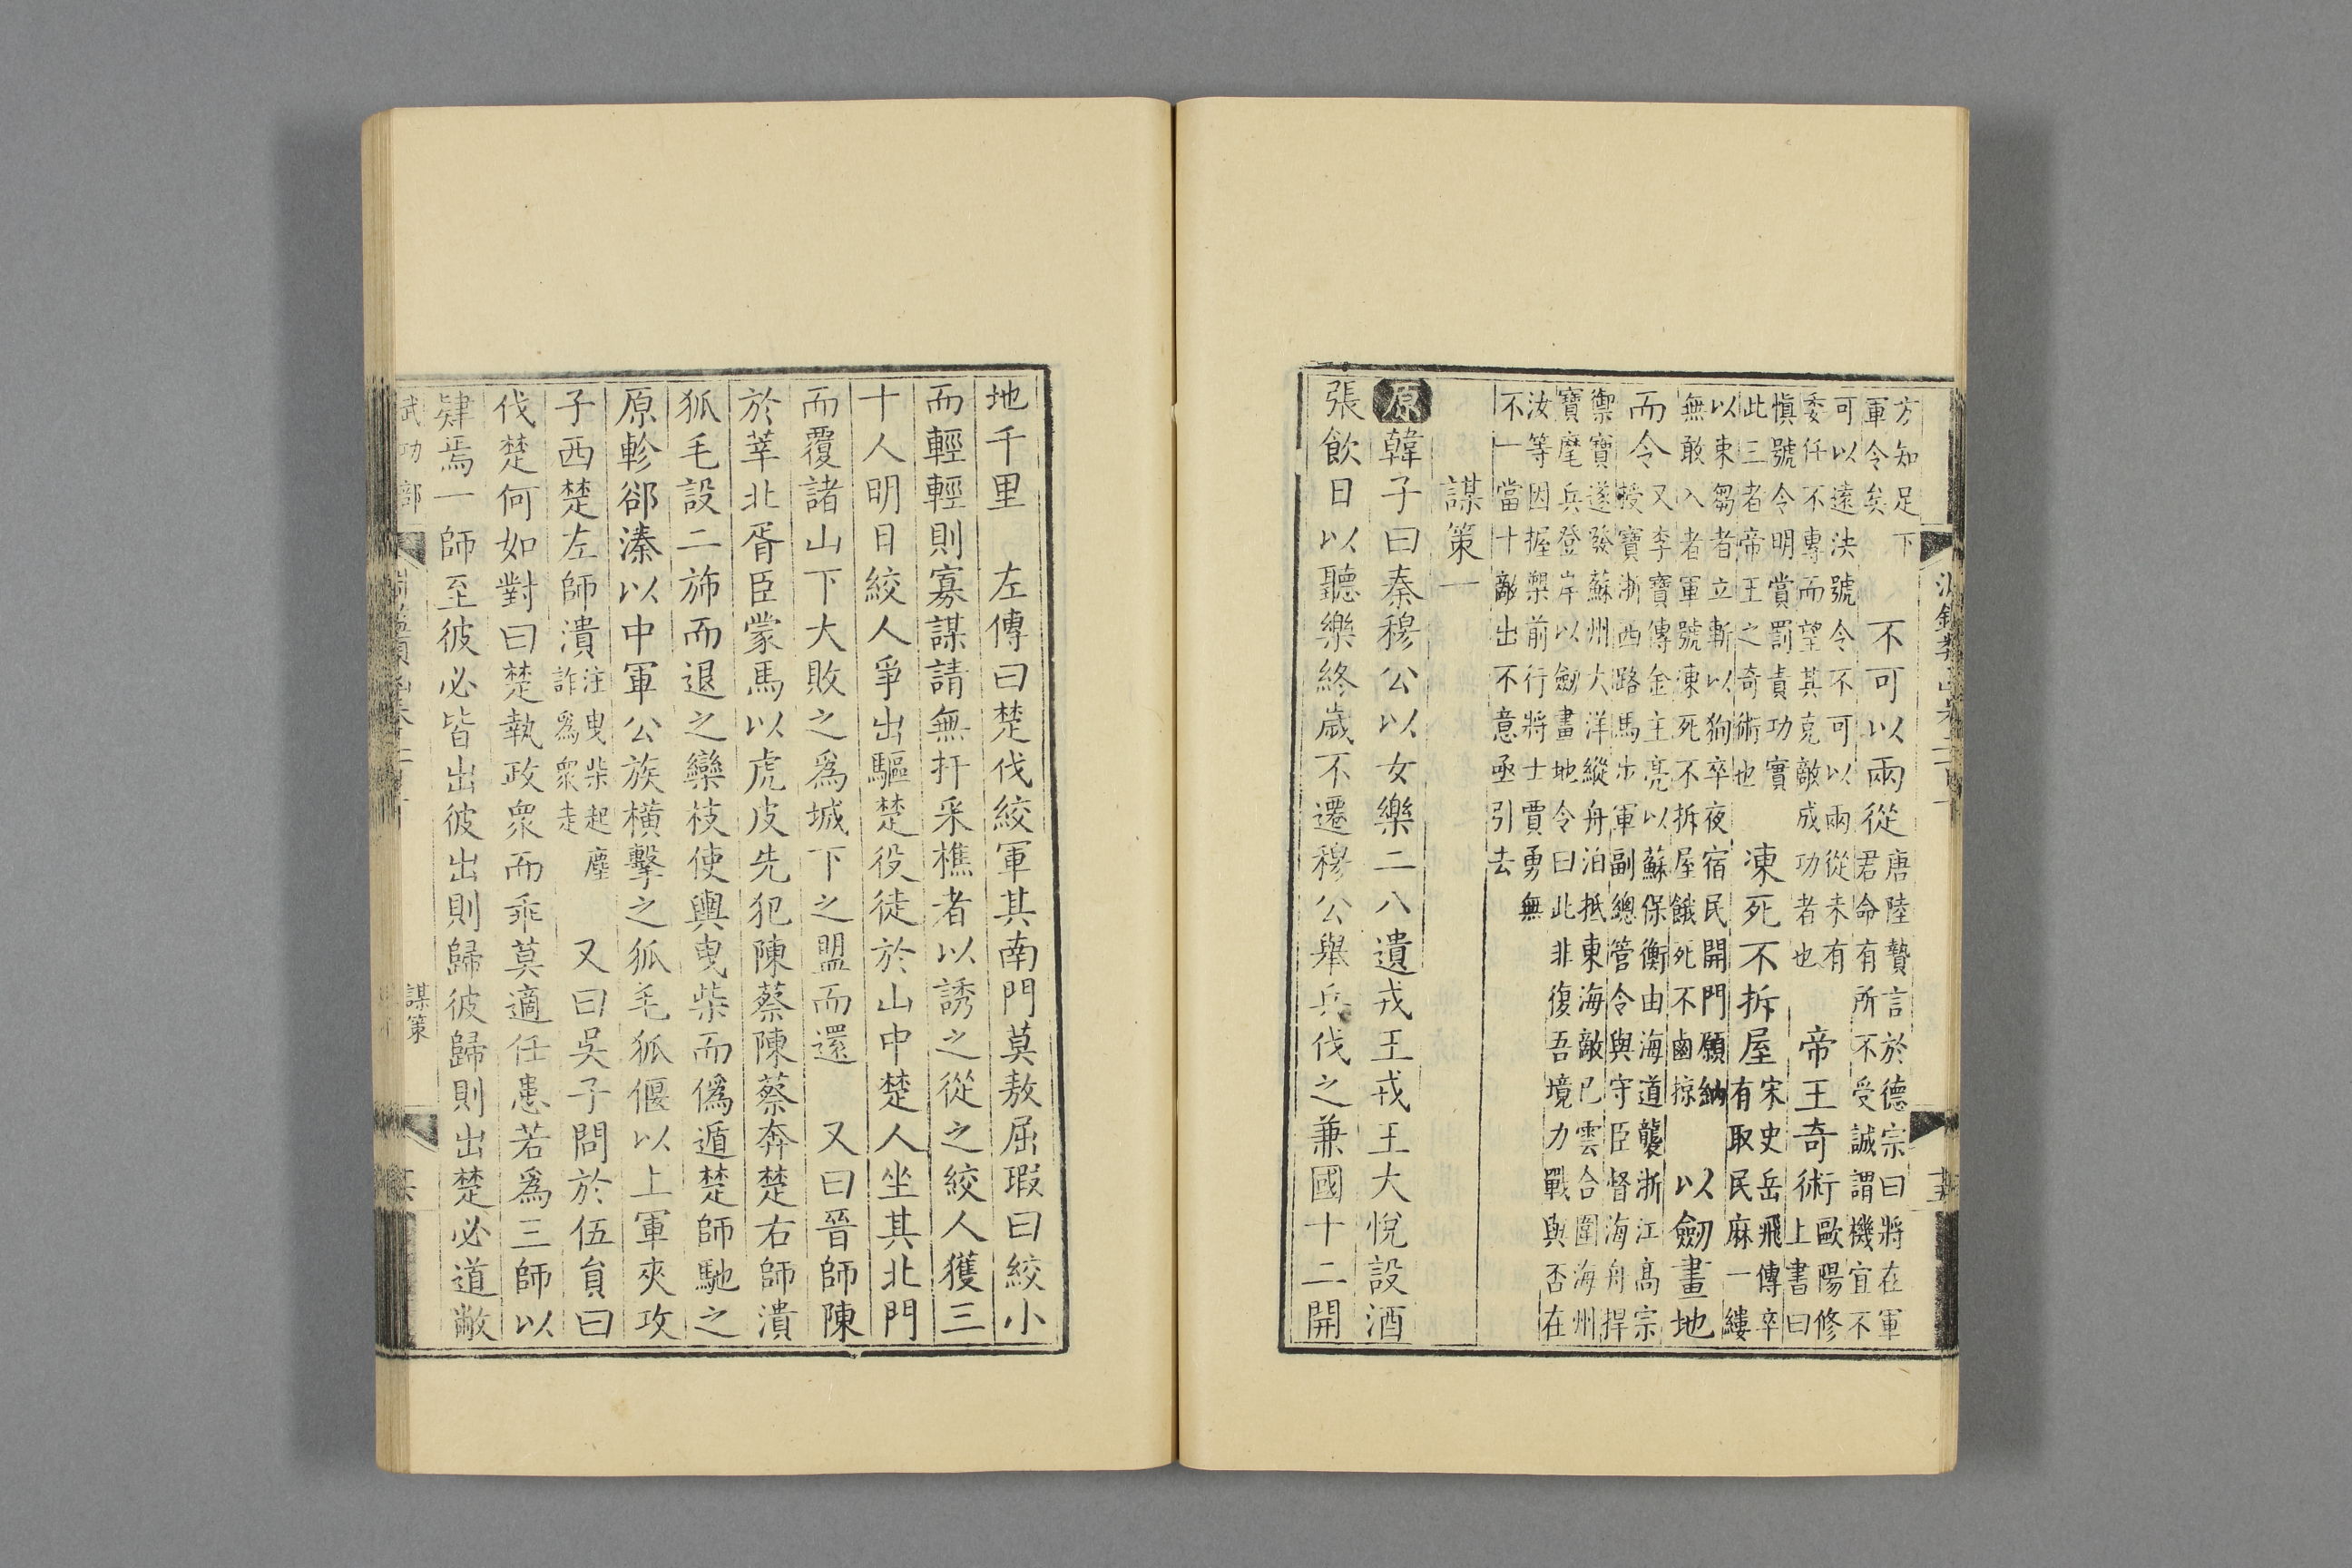 方知足下
軍令矣
不可以兩從
唐陸贄言於德宗曰將在軍
君命有所不受誠謂機宜不
可以遠決號令不可以兩從未有
委任不專而望其克敵成功者也
帝王奇術
歐陽修
上書曰
慎號令明賞罰責功實
此三者帝王之奇術也
凍死不拆屋
宋史岳飛傳卒
有取民麻一縷
以束芻者立斬以狥卒夜宿民開門願納
無敢入者軍號凍死不拆屋餓死不鹵掠
以劒畫地
而令
又李寶傳金主亮以蘇保衡由海道襲浙江高宗
授寶浙西路馬步軍副總管令與守臣督海舟捍
禦寶遂發蘇州大洋縱舟泊抵東海敵已雲合圍海州
寶麾兵登岸以劒畫地令曰此非復吾境力戰與否在
汝等因握槊前行將士賈勇無
不一當十敵出不意亟引去
謀策一
原韓子曰秦穆公以女樂二八遺戎王戎王大悅設酒
張飲日以聽樂終歲不遷穆公舉兵伐之兼國十二開
地千里 左傳曰楚伐絞軍其南門莫敖屈瑕曰絞小
而輕輕則寡謀請無扞采樵者以誘之從之絞人獲三
十人明日絞人爭出驅楚役徒於山中楚人坐其北門
而覆諸山下大敗之爲城下之盟而還 又曰晉師陳
於莘北胥臣蒙馬以虎皮先犯陳蔡陳蔡奔楚右師潰
狐毛設二斾而退之欒枝使輿曳柴而僞遁楚師馳之
原軫郤溱以中軍公族橫擊之狐毛狐偃以上軍夾攻
子西楚左師潰
注曳柴起塵
詐爲衆走
又曰吳子問於伍員曰
伐楚何如對曰楚執政衆而乖莫適任患若爲三師以
肄焉一師至彼必皆出彼出則歸彼歸則出楚必道敝
武功部
謀策